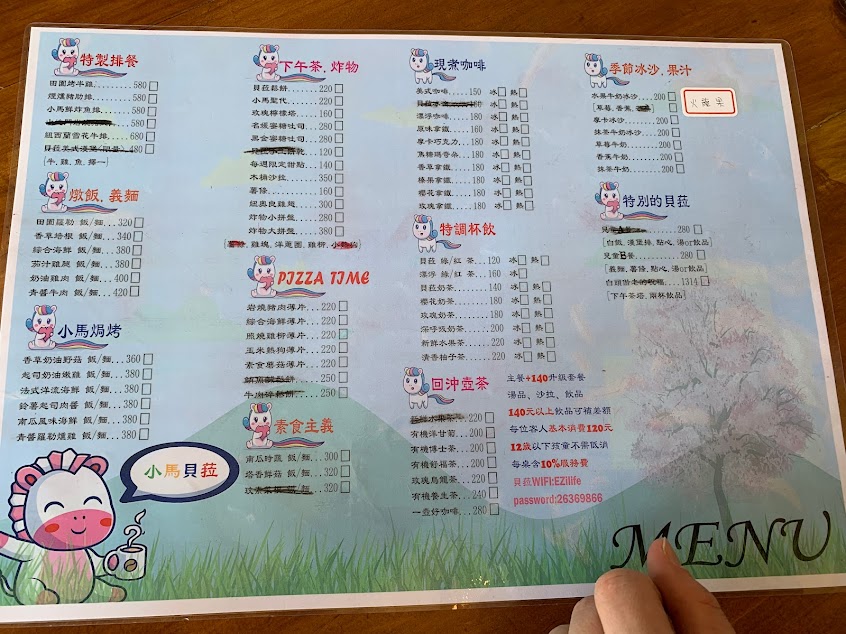 特製排餐
田園烤半雞........580
煙燻豬肋排........580
小馬鮮炸魚排......580
580
紐西蘭雪花牛排....680
480
(牛、雞、魚、擇一)
燉飯、義麵
田園羅勒 飯/麵...320
香草培根 飯/麵...340
綜合海鮮 飯/麵...380
茄汁雞腿 飯/麵...380
奶油雞肉 飯/麵...400
青醬牛肉 飯/麵...420
小馬焗烤
香草奶油野菇 飯/麵...360
起司奶油嫩雞 飯/麵...380
法式洋流海鮮 飯/麵...380
鈴薯起司肉醬 飯/麵...380
南瓜風味海鮮 飯/麵...380
青醬羅勒燻雞 飯/麵...380
小馬貝菈
下午茶、炸物
貝菈鬆餅........220
小馬聖代........220
玫瑰檸檬塔......160
名緩蜜糖吐司....280
黑金蜜糖吐司....280
120
每週限定甜點....140
木桶沙拉........350
薯條............160
紐奧良雞翅......300
炸物小拼盤......280
炸物大拼盤......380
雞塊, 洋蔥圈, 雞柳,
PIZZA TIME
岩燒豬肉薄片...220
綜合海鮮薄片...220
照燒雞柳薄片...220
玉米熱狗薄片...220
素食蘑菇薄片...220
250
250
素食主義
南瓜時蔬 飯/麵...300
塔香鮮菇 飯/麵...320
320
現煮咖啡
美式咖啡......150 冰 熱
冰 熱
漂浮咖啡......180 冰
原味拿鐵......160 冰 熱
摩卡巧克力....180 冰 熱
焦糖瑪奇朵....180 冰 熱
香草拿鐵......180 冰 熱
榛果拿鐵......180 冰 熱
櫻花拿鐵......180 冰 熱
玫瑰拿鐵......180 冰 熱
特調杯飲
貝菈 綠/紅 茶...120 冰 熱
漂浮 綠/紅 茶...160 冰
貝菈奶茶........140 冰 熱
櫻花奶茶........180 冰 熱
玫瑰奶茶........180 冰 熱
深呼吸奶茶......200 冰 熱
新鮮水果茶......220 冰 熱
清香柚子茶......220 冰 熱
回沖壺茶
220
有機洋甘菊....200
有機博士茶....200
有機舒福茶....200
玫瑰烏龍茶....220
有機養生茶....240
一壺好咖啡....280
季節冰沙、果汁
水果牛奶冰沙....200
(草莓、香蕉、
火龍果
摩卡冰沙........200
抹茶牛奶冰沙....200
草莓牛奶........200
香蕉牛奶........200
抹茶牛奶........200
特別的貝菈
280
(白飯, 漢堡排, 點心, 湯or飲品)
兒童B餐........280
(義麵, 薯條, 點心, 湯or飲品)
1314
(下午茶塔, 兩杯飲品)
主餐+140升級套餐
湯品、沙拉、飲品
140元以上飲品可補差額
每位客人基本消費120元
12歲以下孩童不需低消
每桌含10%服務費
貝菈WIFI:EZilife
password:26369866
MENU